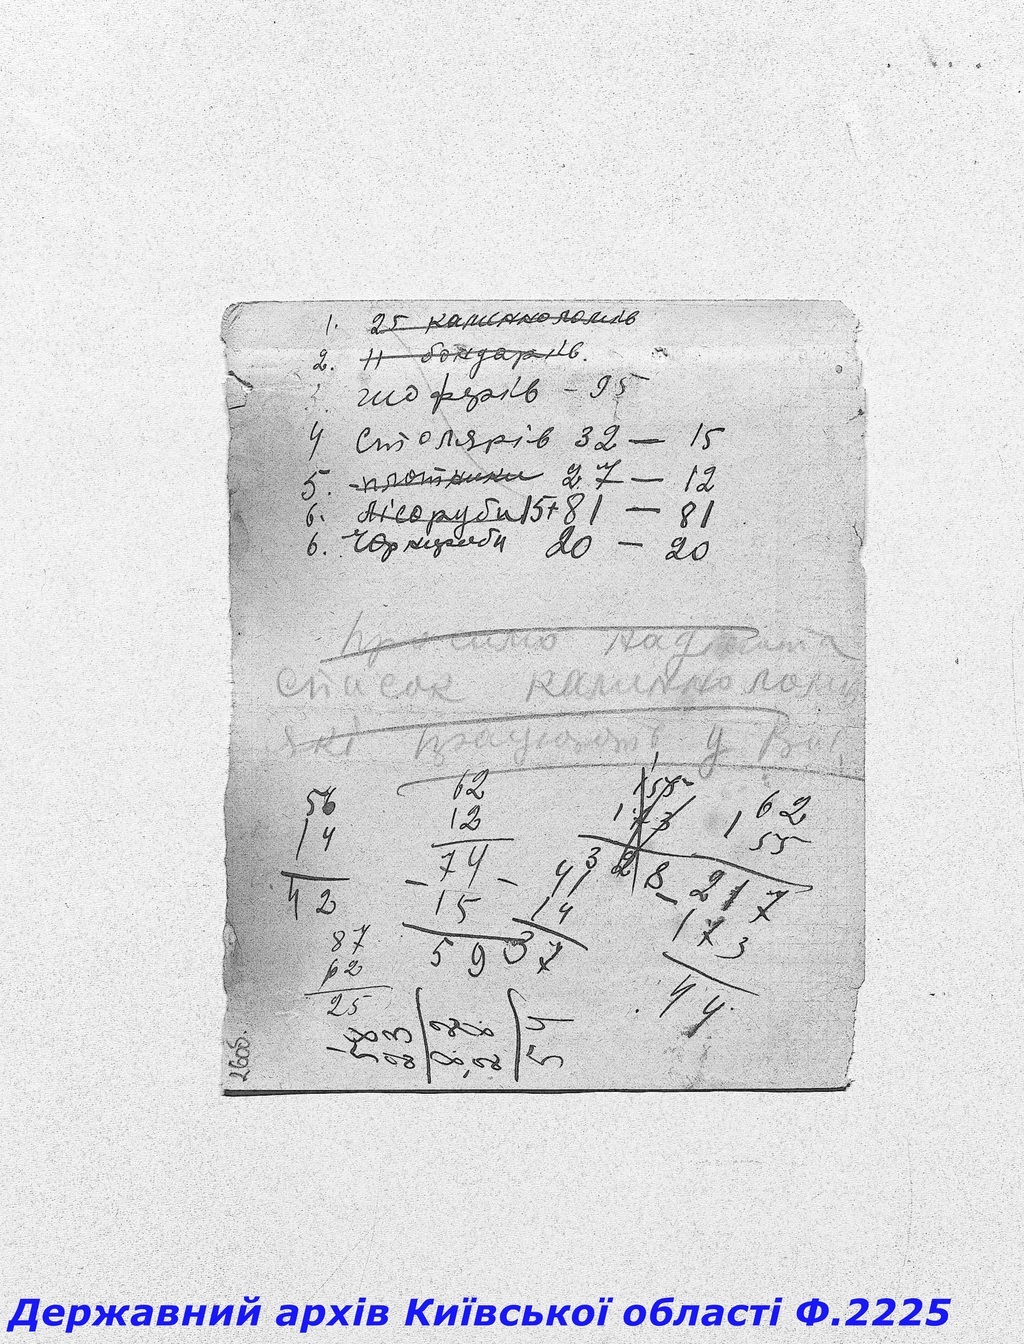 1. 25 каминноломів
2. 11 бондарів.
3. шоферів - 95
4 Столярів 32 — 15
5. плотники 27 — 12
6. Лісоруби 15+81 — 81
6. 20 — 20
Просимо надіслати
список каминноломів
які працюють у
56
14
42
87
62
25
62
12
74
15
59
41
14
37
155
173
328
162
55
217
173
44
260б.
Державний архів Київської області Ф.2225